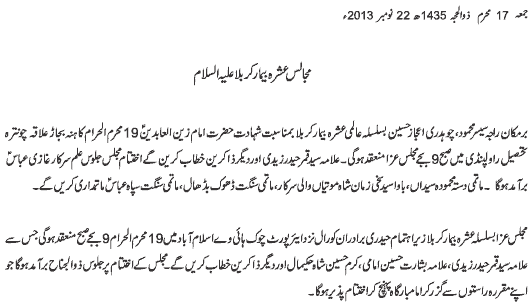 جمعہ 17 محرم ذوالحجہ 1435ھ 22 نومبر 2013ء
مجالس عشرہ بیمار کربلا علیہ السلام
برمکان راجہ سیسر محمود، چوہدری اعجاز حسین بسلسلہ عالمی عشرہ بیمار کربلا بمناسبت شہادت حضرت امام زین العابدینؑ 19 محرم الحرام کاہنہ بجاڑ علاقہ چونترہ
تحصیل راولپنڈی میں صبح 9 بجے مجلس عزا منعقد ہوگی۔ علامہ سید قمر حیدر زیدی اور دیگر ذاکرین خطاب کریں گے اختتام مجلس جلوس علم سرکار غازی عباسؑ
برآمد ہوگا۔ ماتمی دستہ محمودہ سیداں، باوا سید سخی زمان شاہ موتیاں والی سرکار، ماتمی سنگت ڈھوک بڈھال، ماتمی سنگت سپاہ عباسؑ ماتمداری کریں گے۔
مجلس عزا بسلسلہ عشرہ بیمار کربلا زیر اہتمام حیدری برادران کورال نزد ایئرپورٹ چوک ہائی وے اسلام آباد میں 19 محرم الحرام 9 بجے صبح منعقد ہوگی جس سے
علامہ سید قمر حیدر زیدی، علامہ بشارت حسین امامی، کرم حسین شاہ چکیمال اور دیگر ذاکرین خطاب کریں گے۔ مجلس کے اختتام پر جلوس ذوالجناح برآمد ہوگا جو
اپنے مقررہ راستوں سے گزر کر امامبارگاہ پہنچ کر اختتام پذیر ہوگا۔